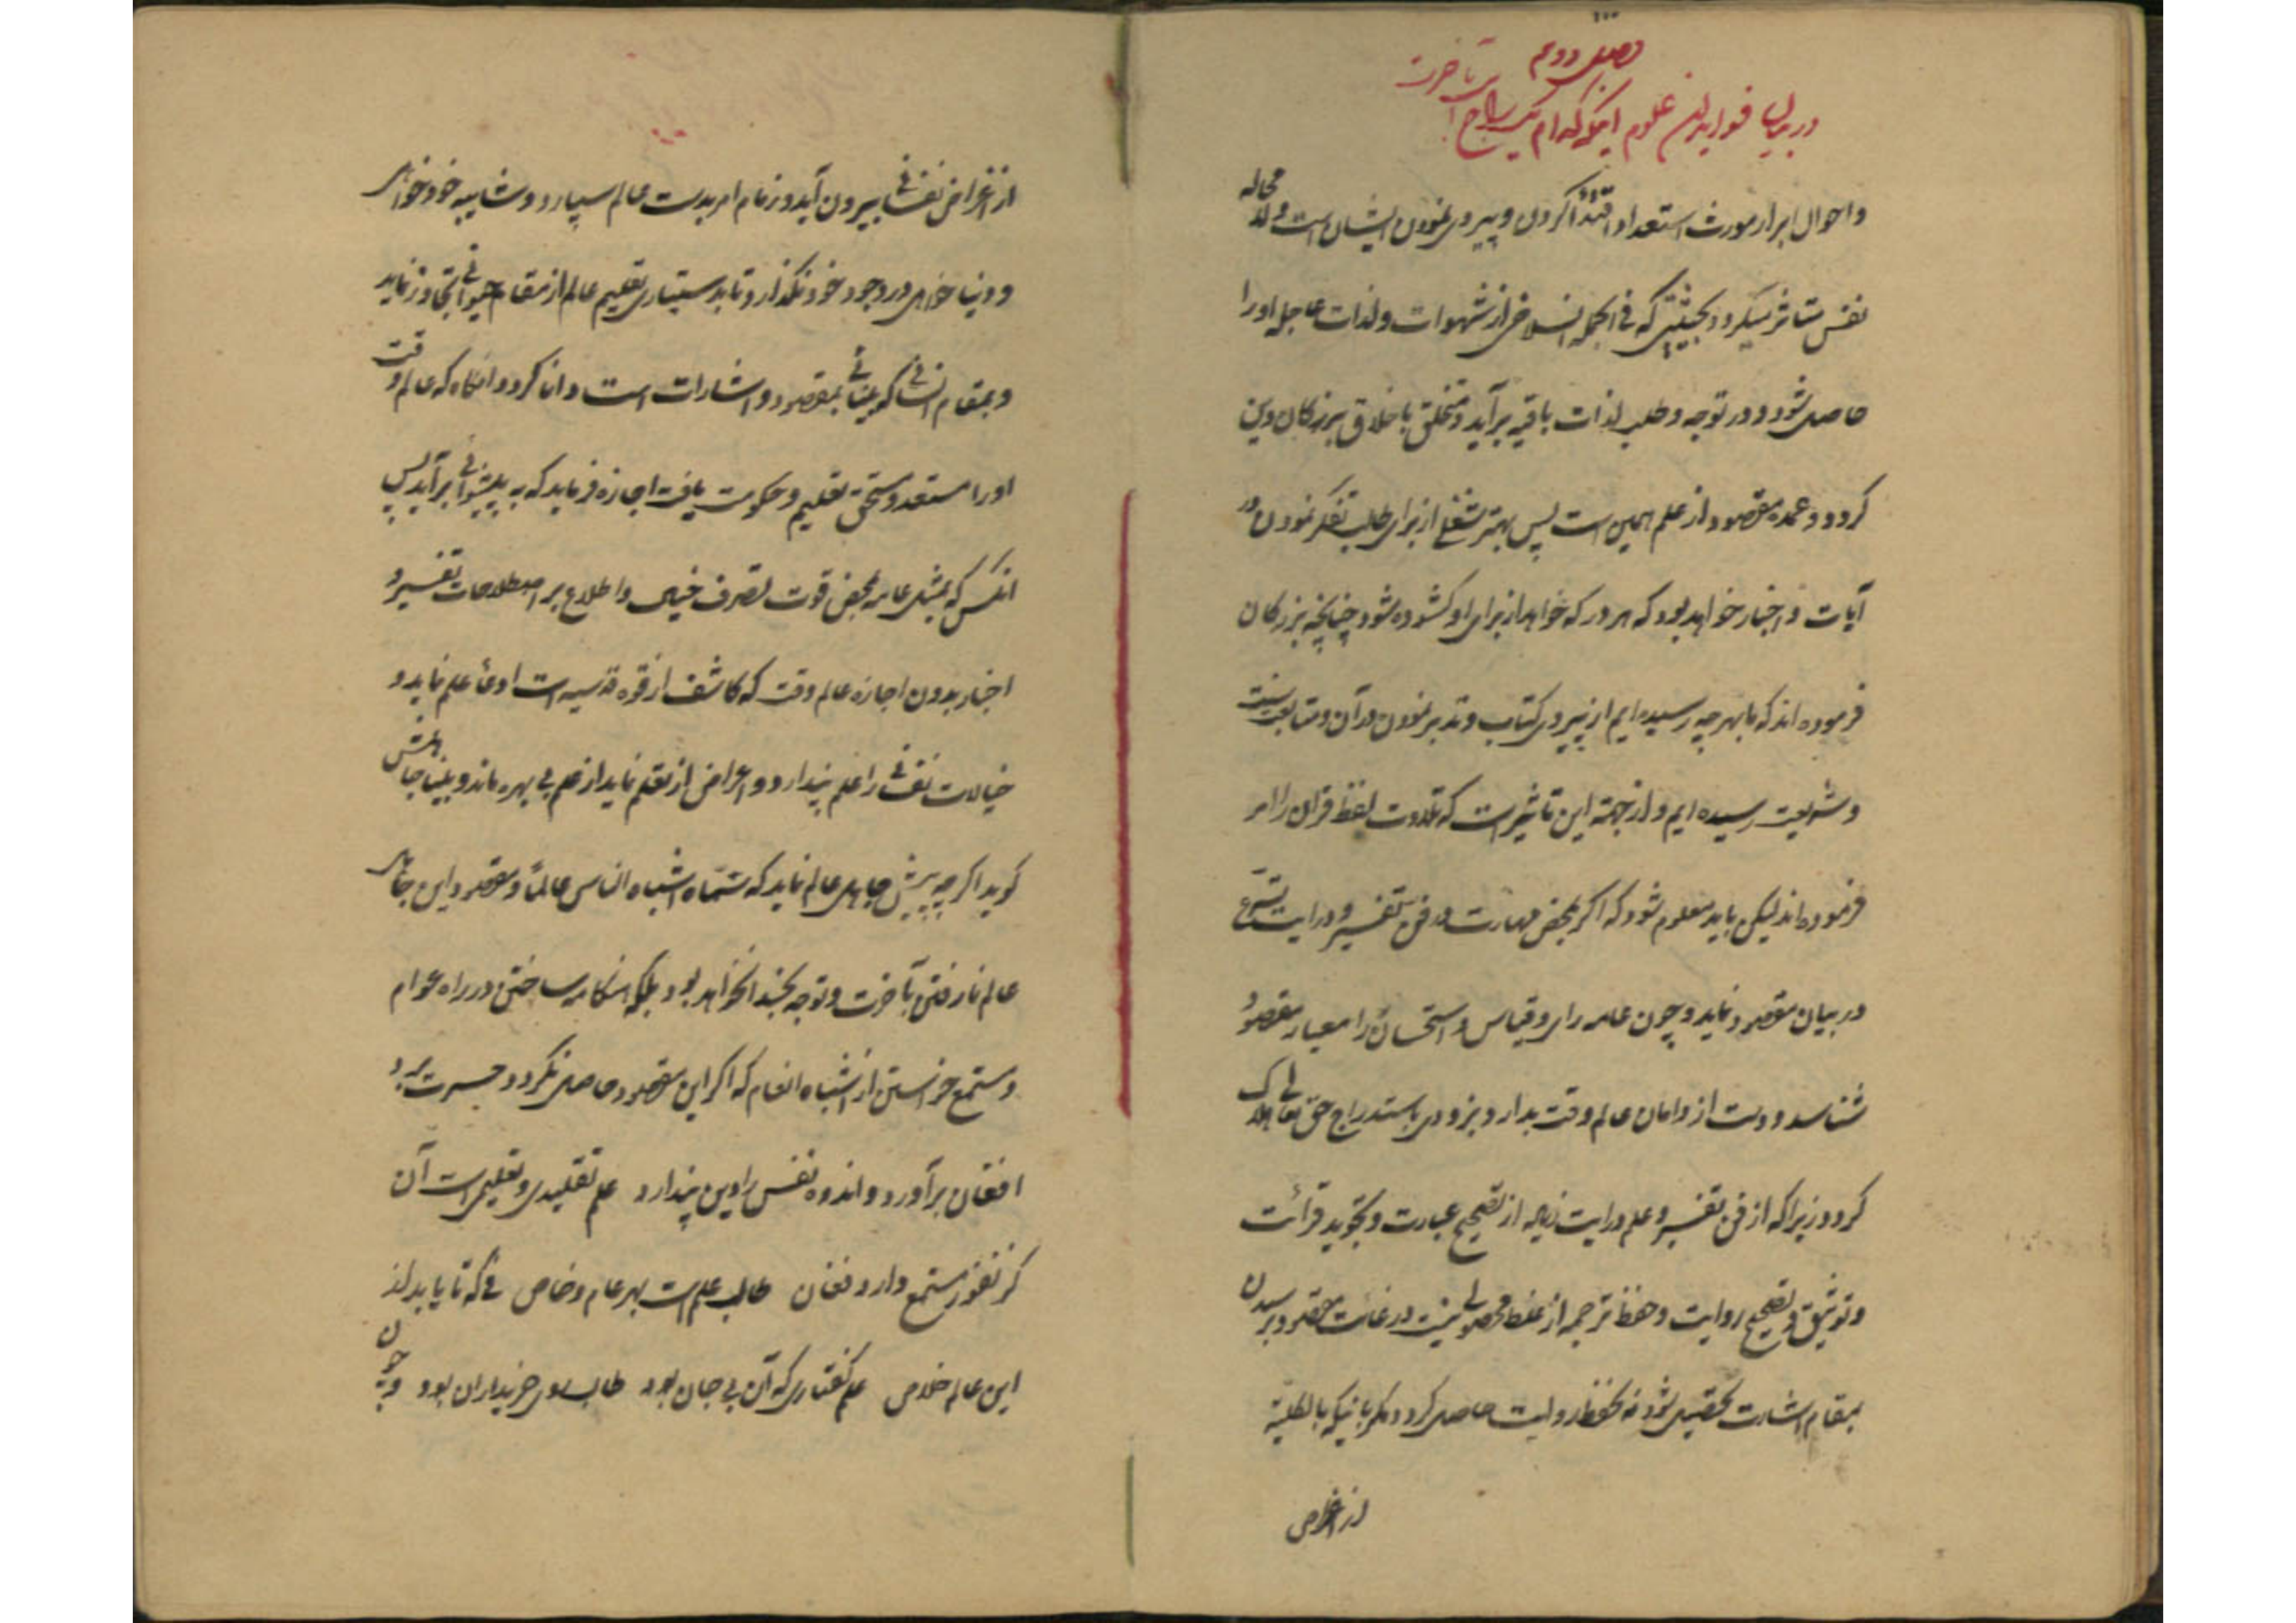 فصل دوم
در بیان فواید این علوم اینکه کدام یک راجع است بآخرت
و احوال ابرار مورث استعداد اقتدا کردن و پیروی نمودن ایشان است و لا محاله
نفس متاثر میگردد بحیثیتی که فی الجمله انسلاخی از شهوات و لذات عاجله او را
حاصل شود و در توجه و طلب لذات باقیه برآید و متخلق باخلاق بزرگان دین
گردد و عمده مقصود از علم همین است پس بهتر شغلی از برای طلب تفکر نمودن در
آیات و اخبار خواهد بود که هر در که خواهد از برای او کشوده شود چنانچه بزرکان
فرموده اند که ما بهر چه رسیده ایم از پیروی کتاب و تدبر نمودن در آن و متابعت سنت
و شریعت رسیده ایم و از جهة این تاثیر است که تلاوت لفظ قرآن را امر
فرموده اند لیکن باید معلوم شود که اگر بمحض مهارت در فن تفسیر و درایت شرع
در بیان مقصود نماید و چون عامه رای و قیاس و استحسان را معیار مقصود
شناسد و دست از دامان عالم وقت بدارد بزودی باستدراج حق تعالی هلاک
گردد زیرا که از فن تفسیر و علم درایت زیاده از تصحیح عبارت و تجوید قرائت
و توثیق و تصحیح روایت و حفظ ترجمه از غلط محصولی نیست در غایت مقصود و رسیدن
بمقام اشارت تحصیل شود نه بحفظ روایت حاصل گردد مگر بانیکه بالکلیة
از اغراض
از اغراض نفسانی بیرون آید و زمام امر بدست عالم سپارد و شایبه خود خواهی
و دنیا خواهی در وجود خود نگذارد تا بدستیاری تعلیم عالم از مقام حیوانی تجاوز نماید
و بمقام انسانی که بینائی بمقصود و اشارات است دانا گردد و انگاه که عالم وقت
او را مستعد و مستحق تعلیم و حکومت یافت اجازه فرماید که به پیشوائی برآید پس
انکس که بمثل عامه بمحض قوت تصرف خیال و اطلاع بر اصطلاحات تفسیر و
اخبار بدون اجازه عالم وقت که کاشف از قوه قدسیه است ادعای علم نماید و
خیالات نفسانی را علم پندارد و اعراض از تعلم نماید از علم بی بهره ماند و بینا جاهلش
گوید اگر چه پیش جاهل عالم نماید که سماه اشباه الناس عالماً و مقصود این جاهل
عالم نما رفتن بآخرت و توجه بخدا نخواهد بود بلکه هنگامه ساختن در راه عوام
و مستمع خواستن از اشباه انعام که اگر این مقصود حاصل نگردد حسرت برد و
افغان برآورد و اندوه نفس را دین پندارد علم تقلیدی و تعلیمی است آن
کز نفور مستمع دارد فغان طالب علم است بهر عام و خاص نی که تا یابد از
این عالم خلاص علم گفتاری که آن بی جان بود طالب روی خریداران بود و چون